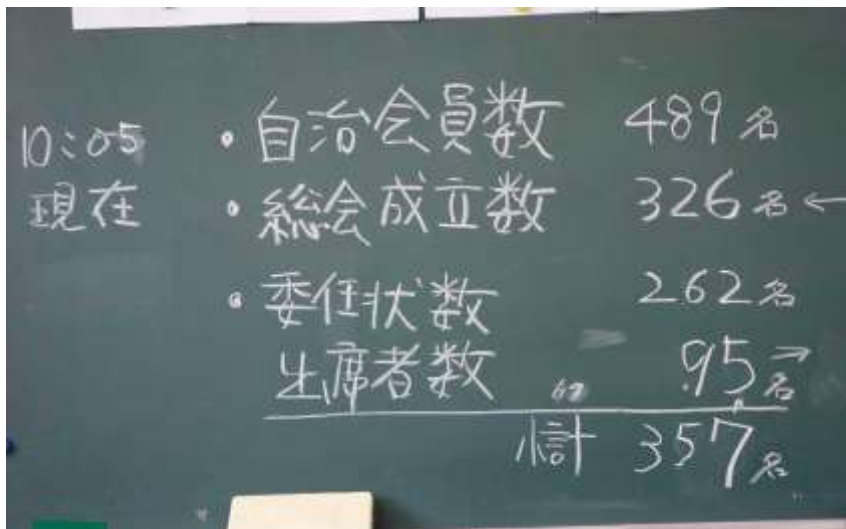 10:05
現在
・自治会員数 489名
・総会成立数 326名←
・委任状数 262名
出席者数 95名→
計 357名